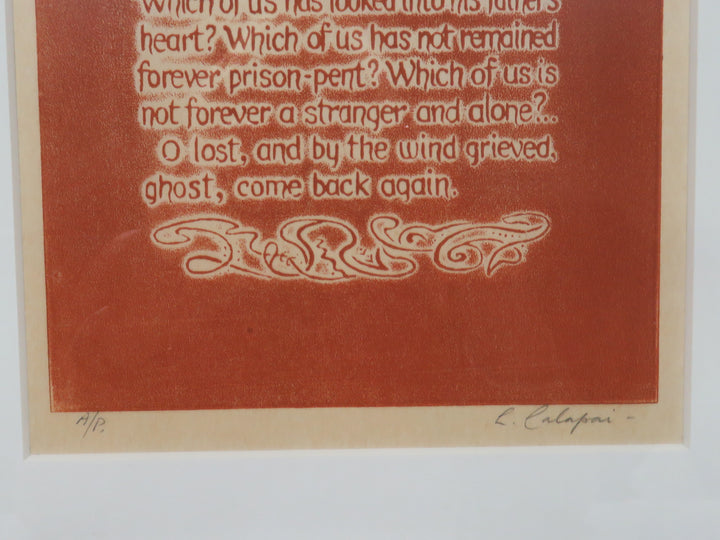 Which of us has looked into his father's
heart? Which of us has not remained
forever prison-pent? Which of us is
not forever a stranger and alone?...
O lost, and by the wind grieved,
ghost, come back again.
A/P.
L. Calapai -